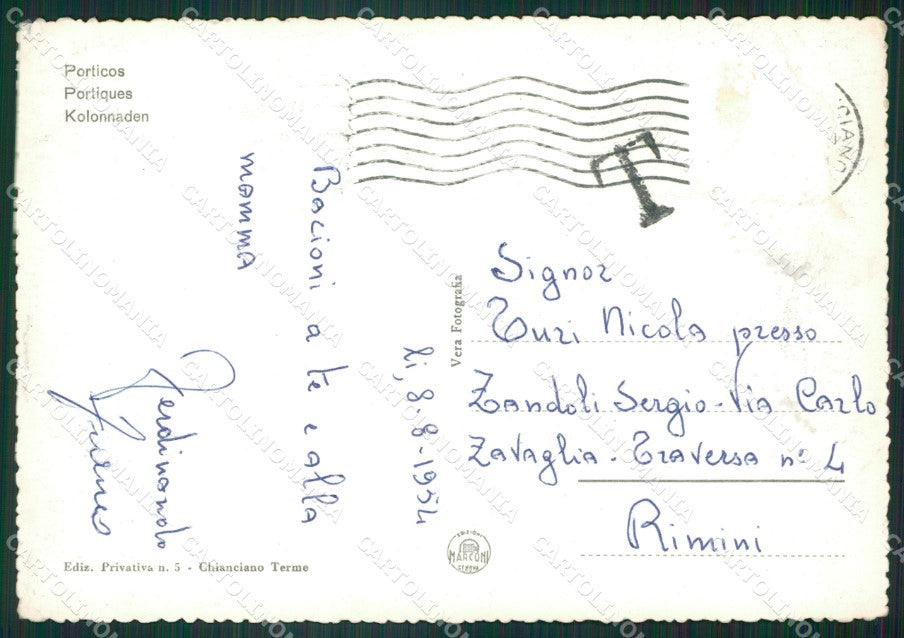 Porticos
Portiques
Kolonnaden
CIANO
T
li, 8-8-1954
Bacioni a te e alla
mamma
Ferdinando
Vera Fotografia
Signor
Turi Nicola presso
Zandoli Sergio-Via Carlo
Zavaglia - Traversa n° 4
Rimini
EDIZIONI
MARCONI
GENOVA
Ediz. Privativa n. 5 - Chianciano Terme
CARTOLINOMANIA